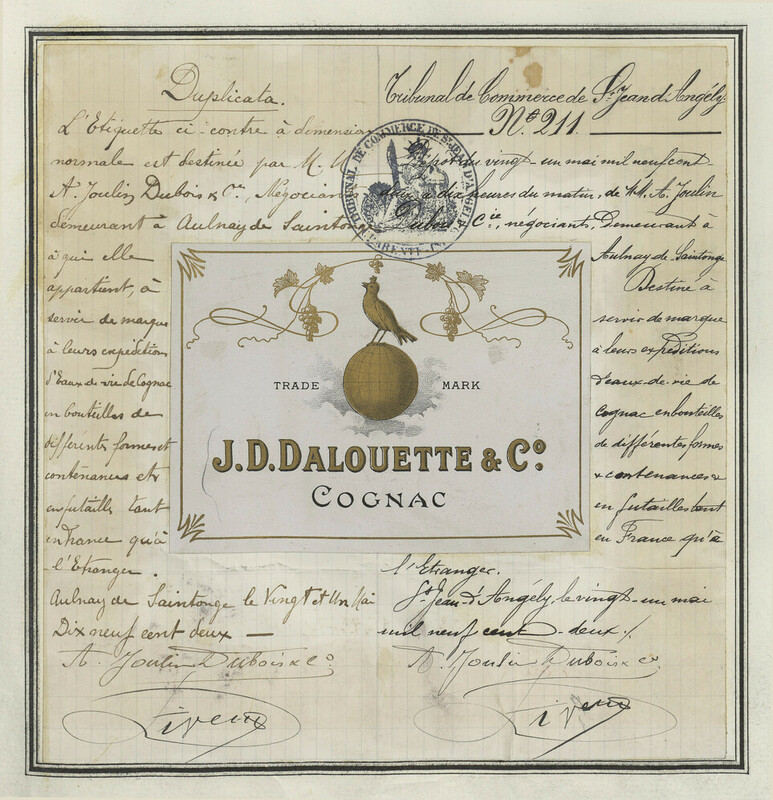 Duplicata.
L'Etiquette ci-contre à dimension
normale est destinée par M. M
A. Joulin Dubois & Cie, Négocian
demeurant à Aulnay de Sainton
à qui elle
appartient, à
servir de marque
à leurs expéditions
d'Eaux de vie de Cognac
en bouteilles de
différentes formes et
contenances et
en futailles tant
en France qu'à
l'Etranger.
Aulnay de Saintonge le Vingt et Un Mai
Dix neuf cent deux —
A. Joulin Dubois & Co
Tribunal de Commerce de St Jean d'Angély
No. 211.
Dépot du vingt-un mai mil neuf cent
à dix heures du matin, de MM. A. Joulin
Dubois Cie, négociants, demeurant à
Aulnay de Saintonge
Destiné à
servir de marque
à leurs expéditions
d'eaux-de-vie de
Cognac en bouteilles
de différentes formes
& contenances &
en futailles tant
en France qu'à
l'Etranger.
St Jean-d'Angély, le vingt-un mai
mil neuf cent-deux ./.
A. Joulin Dubois & Co
TRIBUNAL DE COMMERCE DE ST JEAN D'ANGELY
TRADE MARK
J.D.DALOUETTE & Co.
COGNAC